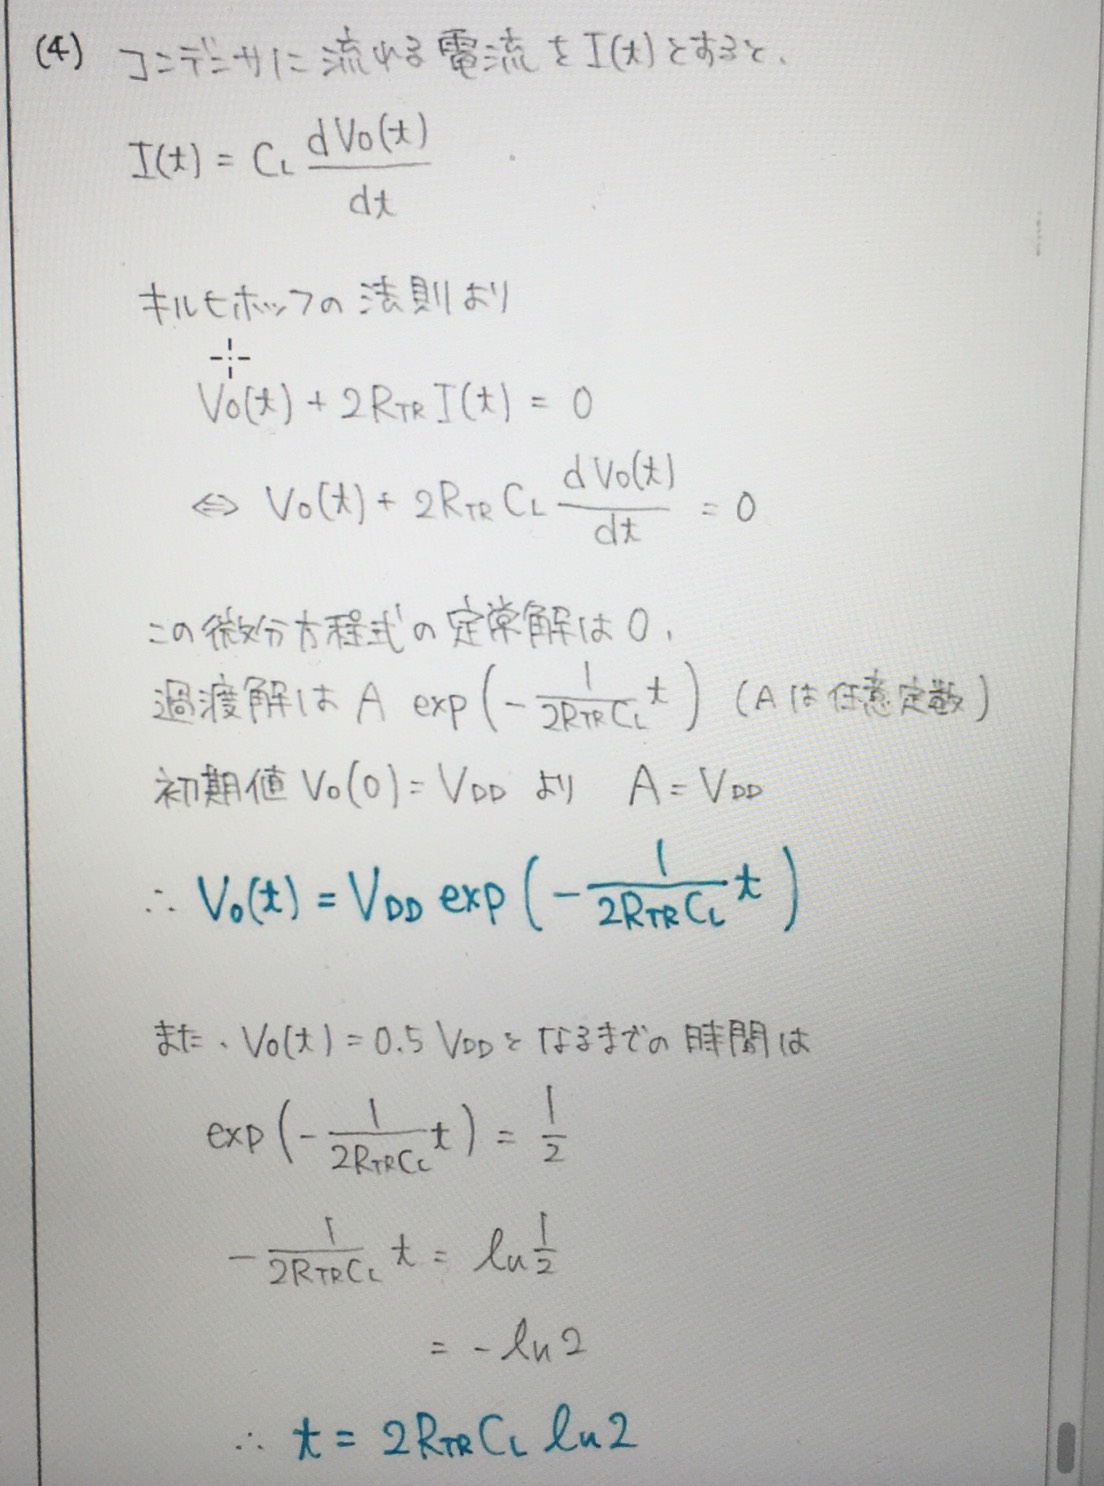 (4) コンデンサに流れる電流をI(t)とすると、
I(t) = C_L dV_O(t)/dt
キルヒホッフの法則より
V_O(t) + 2R_TR I(t) = 0
⇔ V_O(t) + 2R_TR C_L dV_O(t)/dt = 0
この微分方程式の定常解は0、
過渡解は A exp(-1/(2R_TR C_L) t) (Aは任意定数)
初期値 V_O(0) = V_DD より A = V_DD
∴ V_O(t) = V_DD exp(-1/(2R_TR C_L) t)
また、V_O(t) = 0.5 V_DD となるまでの時間は
exp(-1/(2R_TR C_L) t) = 1/2
-1/(2R_TR C_L) t = ln 1/2
= -ln2
∴ t = 2R_TR C_L ln2